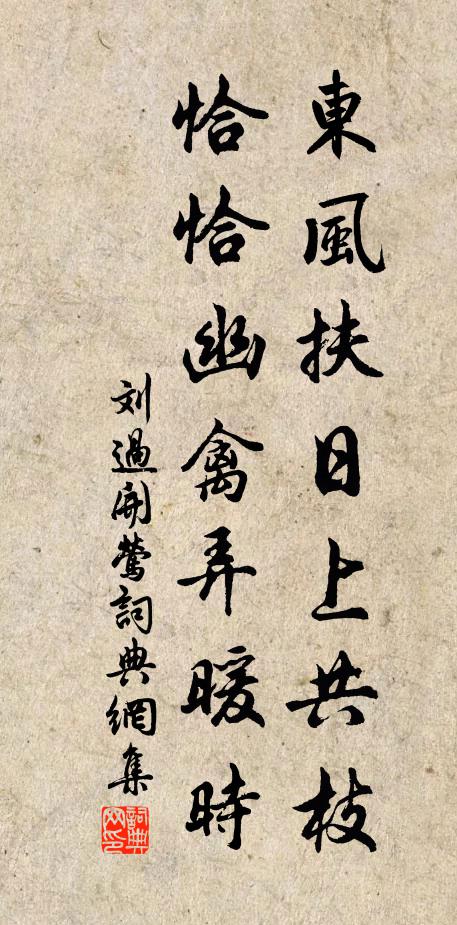 東風扶日上共枝
恰恰幽禽弄暖時
刘過開鶯詞典網集
詞典
网印